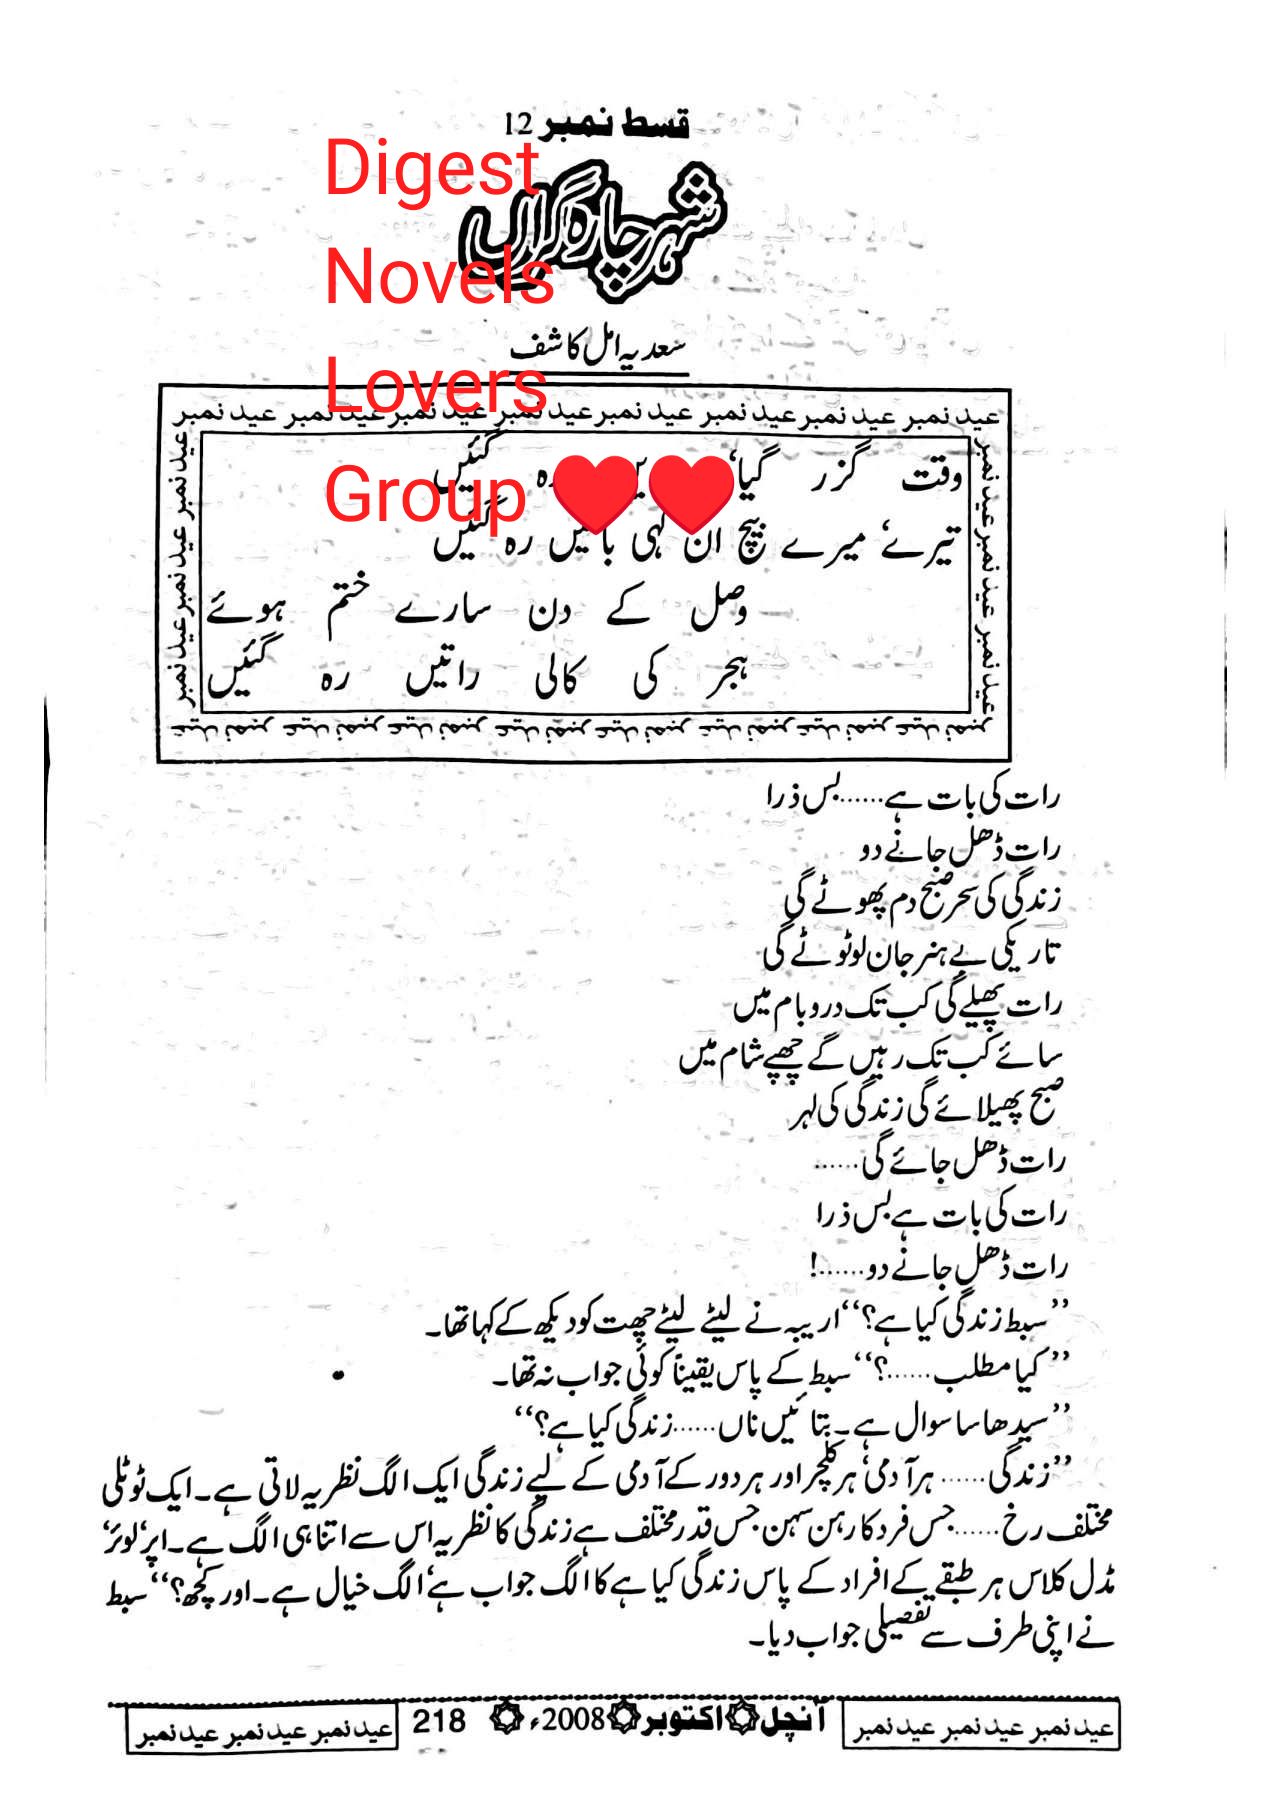 قسط نمبر 12
شہر چارہ گراں
سعدیہ امل کاشف
Digest
Novels
Lovers
Group ❤❤
عید نمبر عید نمبر عید نمبر عید نمبر عید نمبر عید نمبر عید نمبر عید نمبر
عید نمبر عید نمبر عید نمبر عید نمبر
عید نمبر عید نمبر عید نمبر عید نمبر
وقت گزر گیا، رہ گئیں
تیرے، میرے بیچ ان کہی باتیں رہ گئیں
وصل کے دن سارے ختم ہوئے
ہجر کی کالی راتیں رہ گئیں
عید نمبر عید نمبر عید نمبر عید نمبر عید نمبر عید نمبر عید نمبر عید نمبر
رات کی بات ہے......بس ذرا
رات ڈھل جانے دو
زندگی کی سحر صبح دم پھوٹے گی
تاریکی بے ہنر جان لو ٹوٹے گی
رات پھیلے گی کب تک در و بام میں
سائے کب تک رہیں گے چھپے شام میں
صبح پھیلائے گی زندگی کی لہر
رات ڈھل جائے گی......
رات کی بات ہے بس ذرا
رات ڈھل جانے دو......!
’’سبط زندگی کیا ہے؟‘‘ اریبہ نے لیٹے لیٹے چھت کو دیکھ کے کہا تھا۔
’’کیا مطلب......؟‘‘ سبط کے پاس یقیناً کوئی جواب نہ تھا۔
’’سیدھا سا سوال ہے۔ بتائیں ناں......زندگی کیا ہے؟‘‘
’’زندگی...... ہر آدمی، ہر کلچر اور ہر دور کے آدمی کے لیے زندگی ایک الگ نظریہ لاتی ہے۔ ایک ٹوٹلی
مختلف رخ......جس فرد کا رہن سہن جس قدر مختلف ہے زندگی کا نظریہ اس سے اتنا ہی الگ ہے۔ اپر، لوئر،
مڈل کلاس ہر طبقے کے افراد کے پاس زندگی کیا ہے کا الگ جواب ہے، الگ خیال ہے۔ اور کچھ؟‘‘ سبط
نے اپنی طرف سے تفصیلی جواب دیا۔
عید نمبر عید نمبر عید نمبر آنچل ۞ اکتوبر ۞ 2008ء ۞ 218 عید نمبر عید نمبر عید نمبر